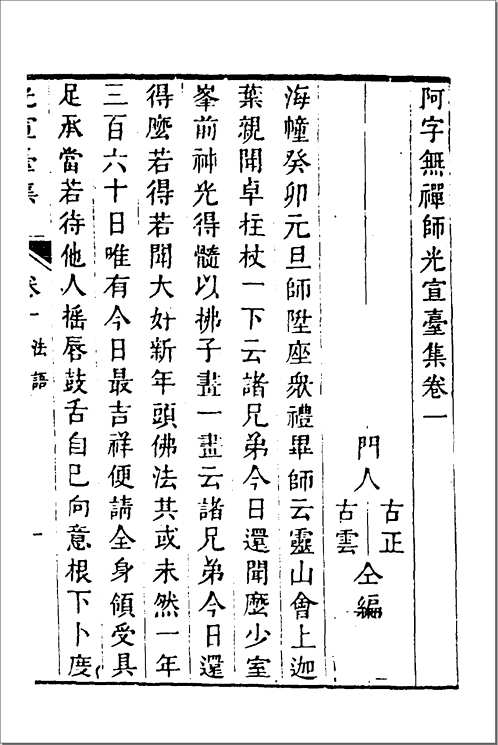 阿字無禪師光宣臺集卷一
門人
古正
古雲
仝編
海幢癸卯元旦師陞座眾禮畢師云靈山會上迦
葉親聞卓柱杖一下云諸兄弟今日還聞麼少室
峯前神光得髓以拂子畫一畫云諸兄弟今日還
得麼若得若聞大好新年頭佛法其或未然一年
三百六十日唯有今日最吉祥便請全身領受具
足承當若待他人搖唇鼓舌自己向意根下卜度
光宣臺集
卷一
法語
一